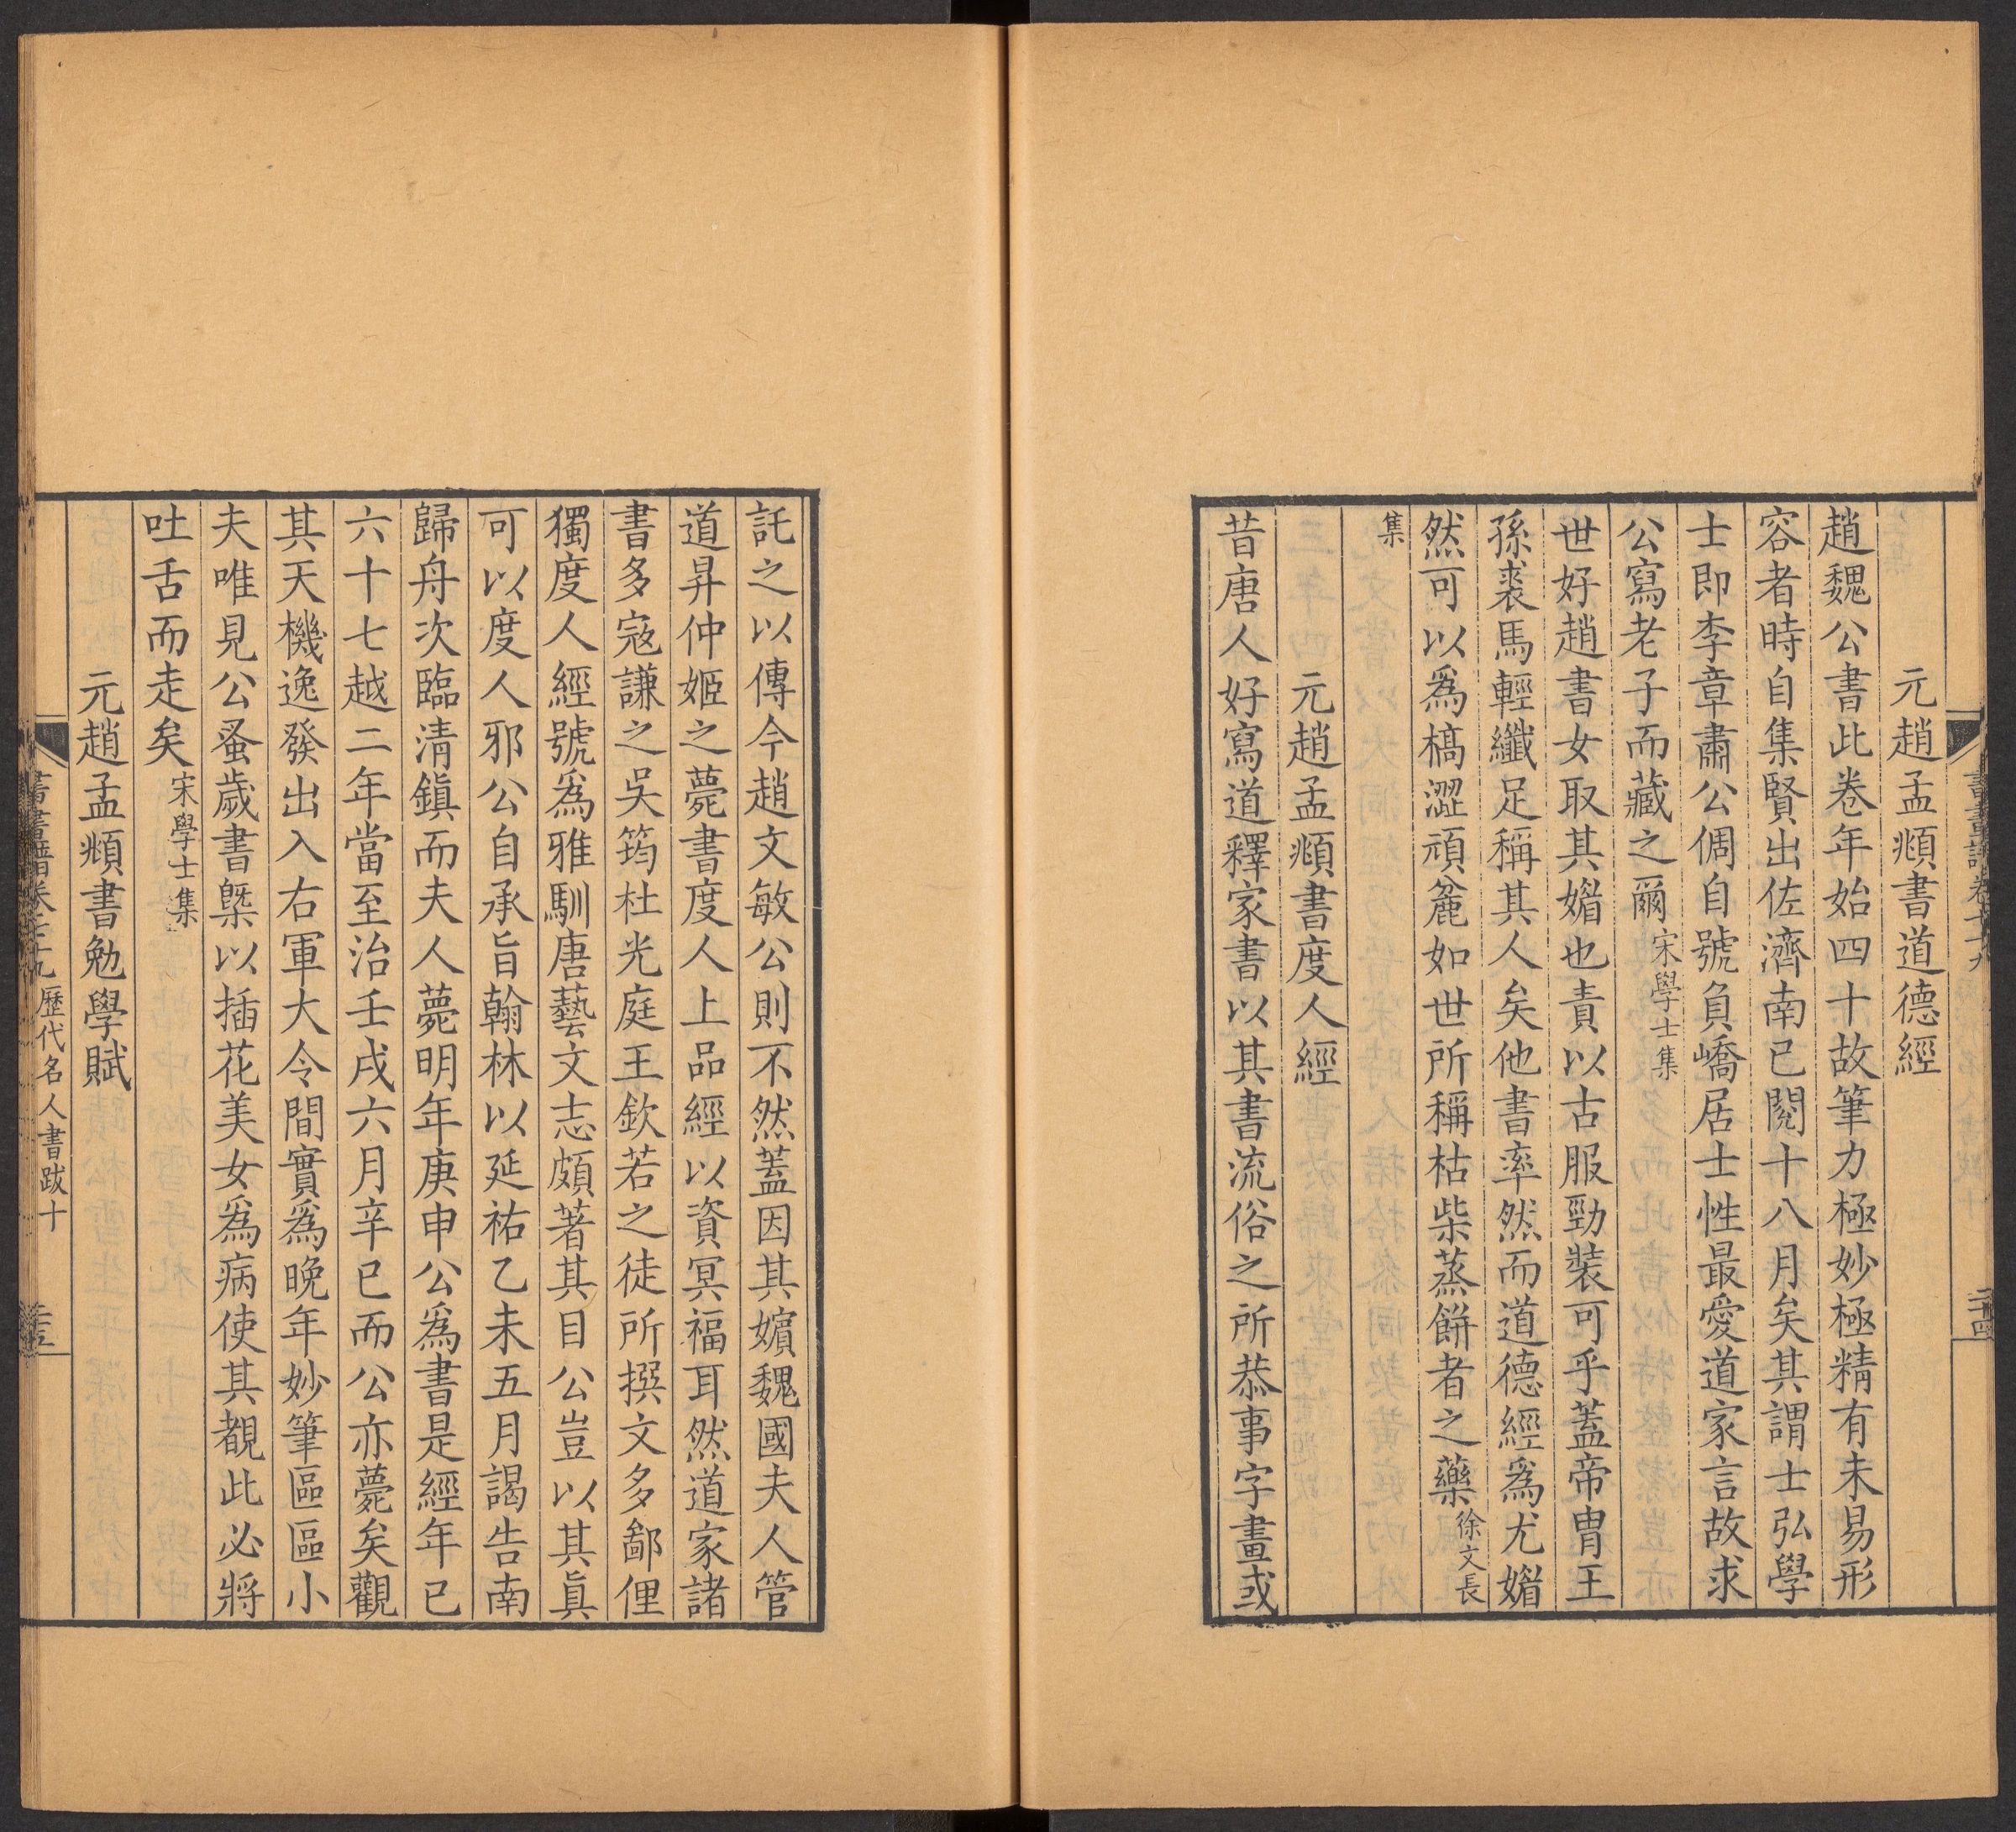 元趙孟頫書道德經
趙魏公書此卷年始四十故筆力極妙極精有未易形
容者時自集賢出佐濟南已閱十八月矣其謂士弘學
士即李章肅公倜自號負嶠居士性最愛道家言故求
公寫老子而藏之爾宋學士集
世好趙書女取其媚也責以古服勁裝可乎蓋帝胄王
孫裘馬輕纖足稱其人矣他書率然而道德經爲尤媚
然可以爲槁澀頑麄如世所稱枯柴蒸餅者之藥徐文長
集
元趙孟頫書度人經
昔唐人好寫道釋家書以其書流俗之所恭事字畫或
託之以傳今趙文敏公則不然蓋因其嬪魏國夫人管
道昇仲姬之薨書度人上品經以資冥福耳然道家諸
書多寇謙之吳筠杜光庭王欽若之徒所撰文多鄙俚
獨度人經號爲雅馴唐藝文志頗著其目公豈以其眞
可以度人邪公自承旨翰林以延祐乙未五月謁告南
歸舟次臨清鎭而夫人薨明年庚申公爲書是經年已
六十七越二年當至治壬戌六月辛巳而公亦薨矣觀
其天機逸發出入右軍大令間實爲晚年妙筆區區小
夫唯見公蚤歲書槩以插花美女爲病使其覩此必將
吐舌而走矣宋學士集
元趙孟頫書勉學賦
歷代名人書跋十